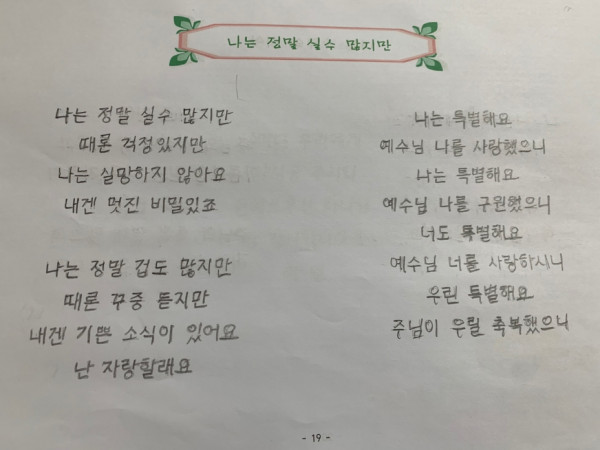 나는 정말 실수 많지만
나는 정말 실수 많지만
때론 걱정있지만
나는 실망하지 않아요
내겐 멋진 비밀있죠
나는 정말 겁도 많지만
때론 꾸중 듣지만
내겐 기쁜 소식이 있어요
난 자랑할래요
나는 특별해요
예수님 나를 사랑했으니
나는 특별해요
예수님 나를 구원했으니
너도 특별해요
예수님 너를 사랑하시니
우린 특별해요
주님이 우릴 축복했으니
- 19 -